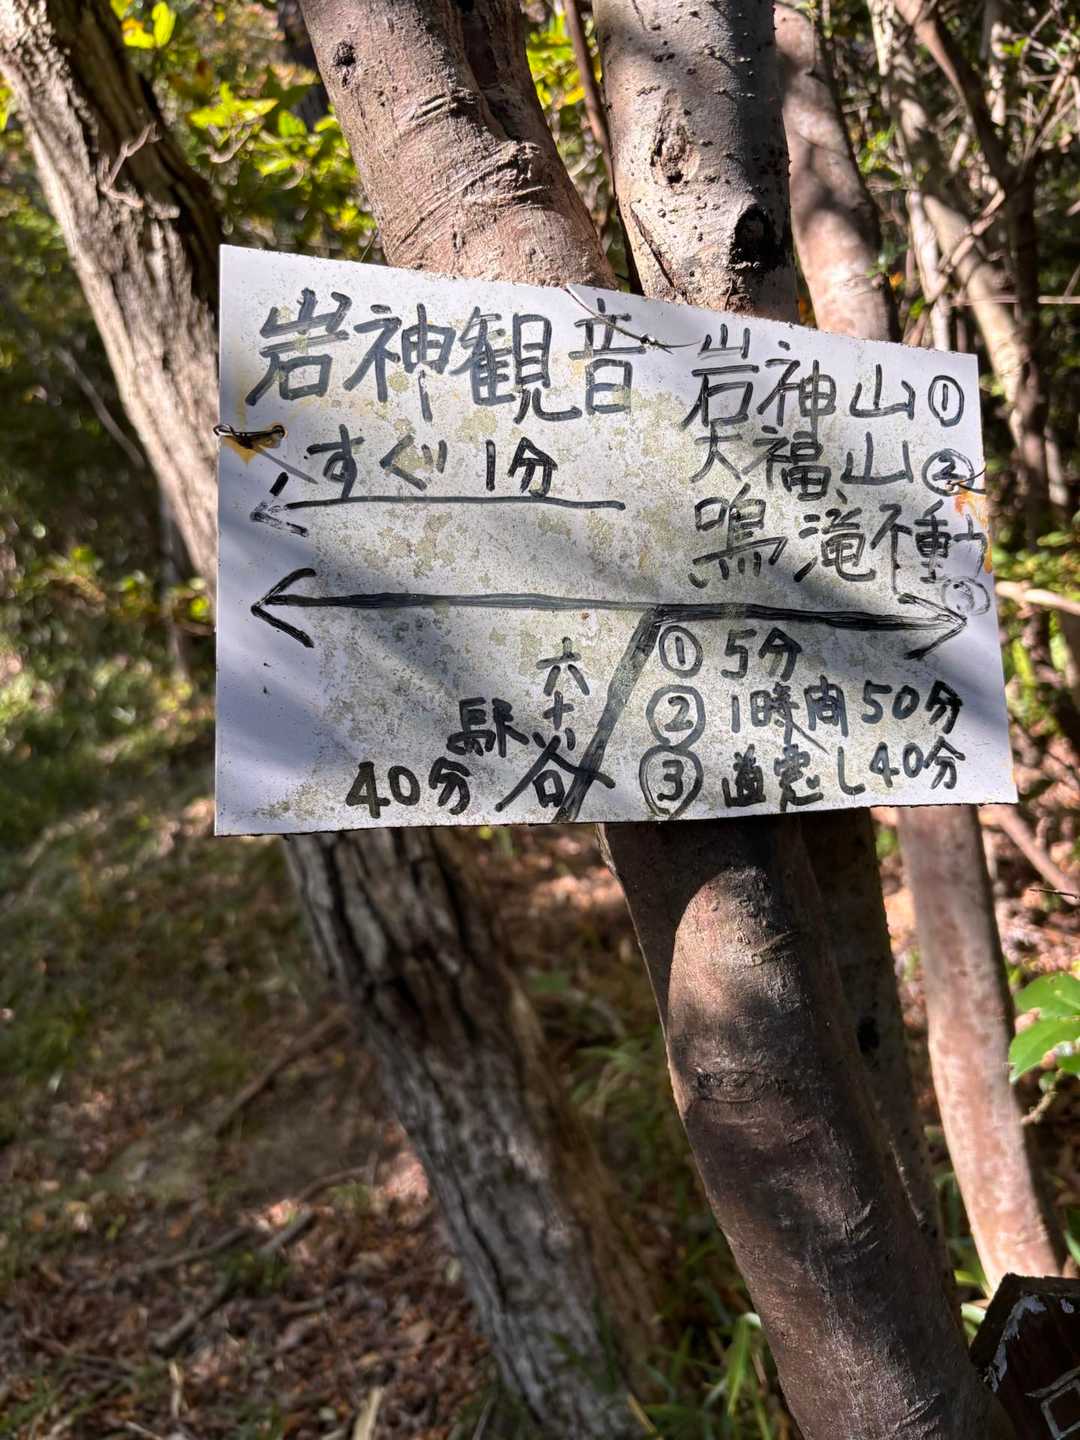 岩神観音
すぐ 1分
岩神山①
天福山②
鳴滝不動
③
六十谷
駅
40分
① 5分
② 1時間50分
③ 道悪し40分